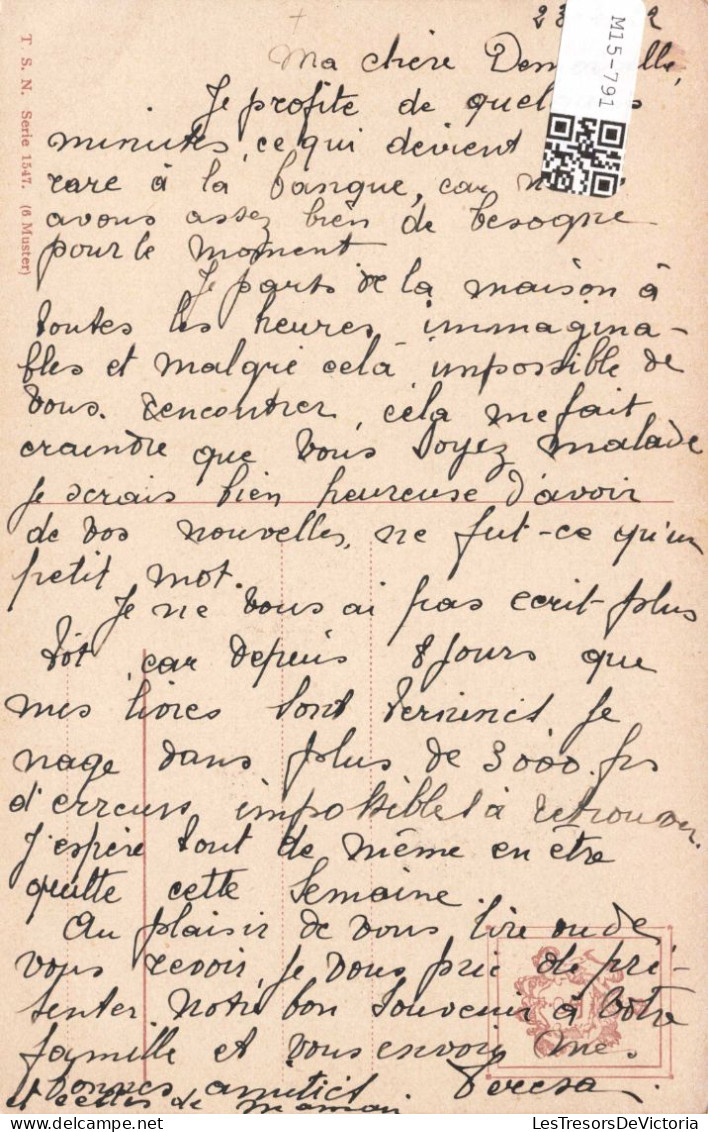 Ma chère
Je profite de
minutes, ce qui devient
rare à la banque, car
avons assez bien de besogne
pour le moment.
Je pars de la maison à
toutes les heures immagina-
bles et malgré celà impossible de
vous rencontrer, cela me fait
craindre que vous soyez malade
Je serais bien heureuse d'avoir
de vos nouvelles, ne fut-ce qu'un
petit mot.
Je ne vous ai pas ecrit plus
tôt car depuis 8 jours que
mes livres sont je
nage dans plus de 3000 frs
d'erreurs impossibles à retrouver.
J'espère tout de même en être
quitte cette semaine.
Au plaisir de vous lire ou de
vous revoir, je vous prie de pré-
senter notre bon souvenir à votre
famille et vous envoie mes
bonnes amitiés. Teresa.
et celles de maman
T. S. N. Serie 1547. (6 Muster)
M15-791
LesTresorsDeVictoria.com